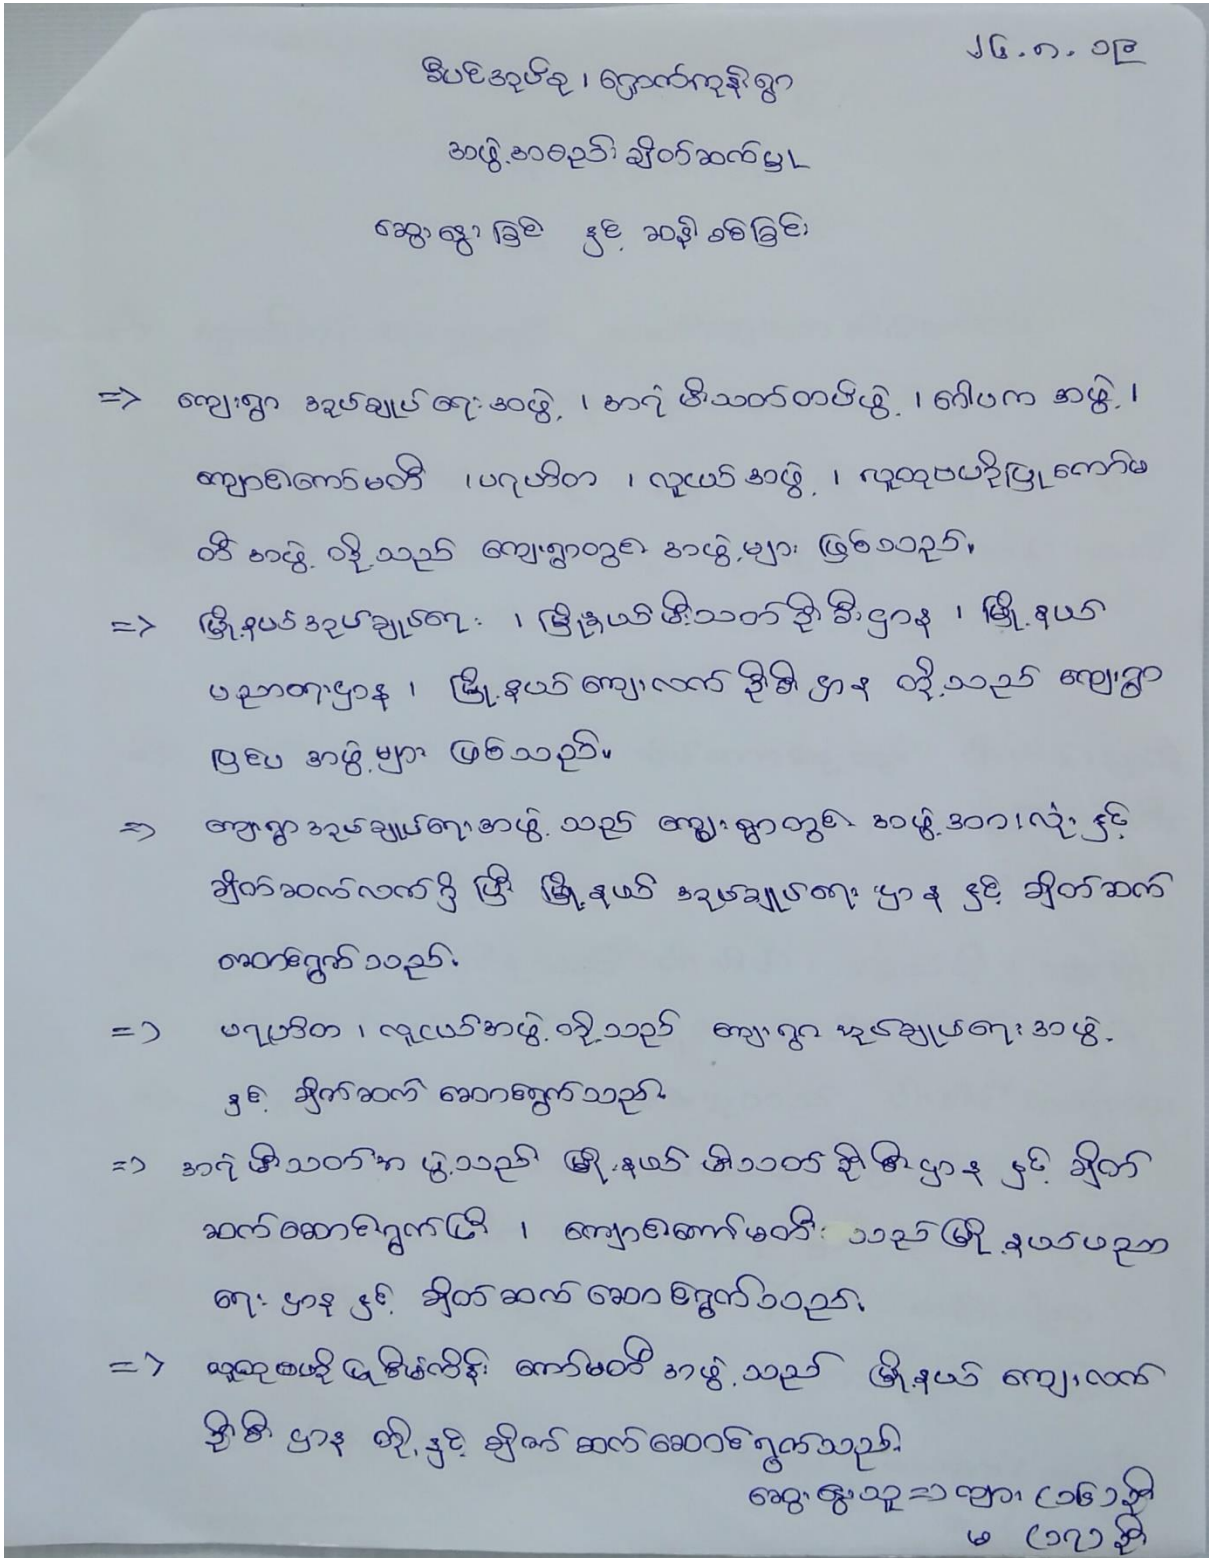 ၂၄.၈.၁၉
အုပ်စု၊ ရှောက်ကုန်းရွာ
အဖွဲ့အစည်း ချိတ်ဆက်မှု
ဆွေးနွေးခြင်း နှင့် ဆန်းစစ်ခြင်း
=> ကျေးရွာ အုပ်ချုပ်ရေးအဖွဲ့ ၊ အရံမီးသတ်တပ်ဖွဲ့ ၊ အဖွဲ့ ၊
ကျောင်းကော်မတီ ၊ ပရဟိတ ၊ လူငယ်အဖွဲ့ ၊ လူထုဗဟိုပြုကော်မ
တီ အဖွဲ့ တို့သည် ကျေးရွာတွင်း အဖွဲ့များ ဖြစ်သည်။
=> မြို့နယ်အုပ်ချုပ်ရေး ၊ မြို့နယ်မီးသတ်ဦးစီးဌာန ၊ မြို့နယ်
ပညာရေးဌာန ၊ မြို့နယ်ကျေးလက်ဦးစီးဌာန တို့သည် ကျေးရွာ
ပြင်ပ အဖွဲ့များ ဖြစ်သည်။
=> ကျေးရွာအုပ်ချုပ်ရေးအဖွဲ့ သည် ကျေးရွာတွင်း အဖွဲ့အားလုံး နှင့်
ချိတ်ဆက်လက်ရှိ ပြီး မြို့နယ် အုပ်ချုပ်ရေး ဌာန နှင့် ချိတ်ဆက်
ဆောင်ရွက်သည်။
=> ပရဟိတ ၊ လူငယ်အဖွဲ့ တို့သည် ကျေးရွာ အုပ်ချုပ်ရေး အဖွဲ့
နှင့် ချိတ်ဆက် ဆောင်ရွက်သည်။
=> အရံမီးသတ်အဖွဲ့သည် မြို့နယ် မီးသတ်ဦးစီးဌာန နှင့် ချိတ်
ဆက်ဆောင်ရွက်ပြီး ၊ ကျောင်းကော်မတီ သည် မြို့နယ်ပညာ
ရေး ဌာန နှင့် ချိတ်ဆက်ဆောင်ရွက်သည်။
=> လူထုဗဟိုပြုစီမံကိန်း ကော်မတီ အဖွဲ့ သည် မြို့နယ် ကျေးလက်
ဦးစီး ဌာန တို့နှင့် ချိတ်ဆက်ဆောင်ရွက်သည်။
ဆွေးနွေးသူ => ကျား (၁၆) ဦး
မ (၁၇) ဦး